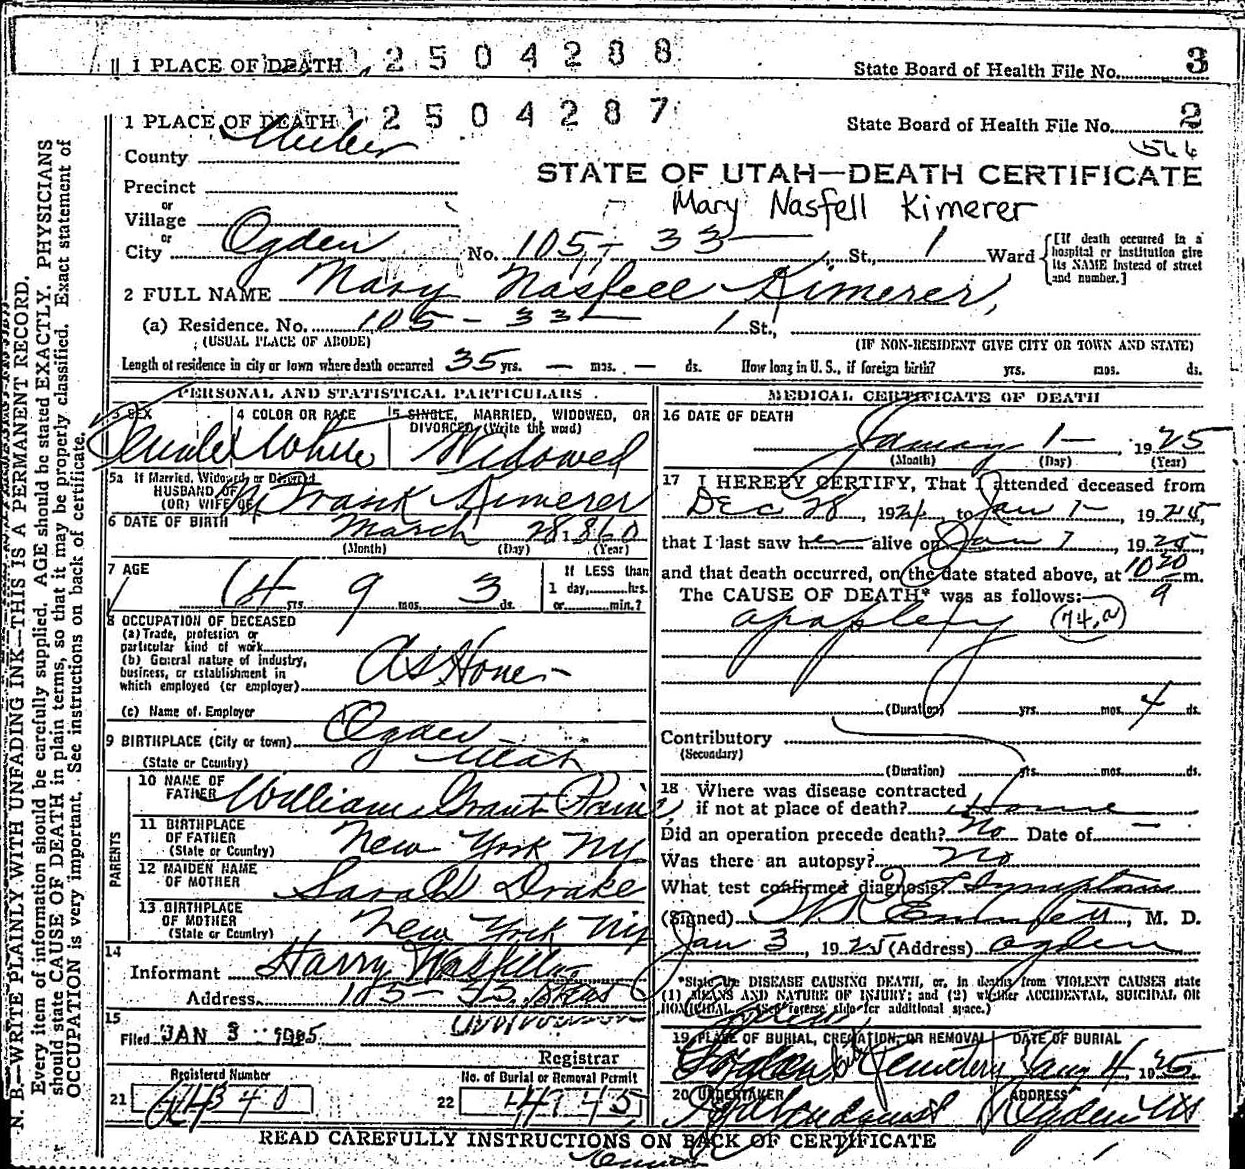 1 PLACE OF DEATH 2504288 State Board of Health File No. 3
1 PLACE OF DEATH 2504287 State Board of Health File No. 2
566
County Weber
STATE OF UTAH—DEATH CERTIFICATE
Precinct
or
Mary Nasfell Kimerer
Village
or
City Ogden No. 105 - 33 St., 1 Ward [If death occurred in a hospital or institution give its NAME instead of street and number.]
2 FULL NAME Mary Nasfell Kimerer
(a) Residence. No. 105 - 33 1 St.,
(USUAL PLACE OF ABODE) (IF NON-RESIDENT GIVE CITY OR TOWN AND STATE)
Length of residence in city or town where death occurred 35 yrs. — mos. — ds. How long in U. S., if foreign birth? yrs. mos. ds.
PERSONAL AND STATISTICAL PARTICULARS
3 SEX 4 COLOR OR RACE 5 SINGLE, MARRIED, WIDOWED, OR DIVORCED (Write the word)
Female White Widowed
5a If Married, Widowed, or Divorced
HUSBAND OF
(OR) WIFE OF Frank Kimerer
6 DATE OF BIRTH March 28 1860
(Month) (Day) (Year)
7 AGE 64 yrs. 9 mos. 3 ds. If LESS than 1 day, hrs. or min.?
8 OCCUPATION OF DECEASED
(a) Trade, profession or
particular kind of work
(b) General nature of industry,
business, or establishment in
which employed (or employer) At Home
(c) Name of Employer
9 BIRTHPLACE (City or town) Ogden
(State or Country) Utah
PARENTS
10 NAME OF
FATHER William Grant
11 BIRTHPLACE
OF FATHER
(State or Country) New York NY
12 MAIDEN NAME
OF MOTHER Sarah Drake
13 BIRTHPLACE
OF MOTHER
(State or Country) New York NY
14
Informant Harry Nasfell
Address 105 - 33
15
Filed JAN 3 1925
Registrar
Registered Number No. of Burial or Removal Permit
21 22
MEDICAL CERTIFICATE OF DEATH
16 DATE OF DEATH
January 1 - 1925
(Month) (Day) (Year)
17 I HEREBY CERTIFY, That I attended deceased from
Dec 28, 1924, to Jan 1 - 1925,
that I last saw her alive on Jan 1, 1925,
and that death occurred, on the date stated above, at 1030 m.
The CAUSE OF DEATH* was as follows:
apoplexy (74,a)
(Duration) yrs. mos. 4 ds.
Contributory
(Secondary)
(Duration) yrs. mos. ds.
18 Where was disease contracted
if not at place of death? Home
Did an operation precede death? No Date of —
Was there an autopsy? No
What test confirmed diagnosis? Symptoms
(Signed) M. D.
Jan 3, 1925 (Address) Ogden
*State the DISEASE CAUSING DEATH, or, in deaths from VIOLENT CAUSES state
(1) MEANS AND NATURE OF INJURY; and (2) whether ACCIDENTAL, SUICIDAL OR
HOMICIDAL. (See reverse side for additional space.)
19 PLACE OF BURIAL, CREMATION, OR REMOVAL DATE OF BURIAL
Ogden Cemetery Jan 4, 1925
20 UNDERTAKER ADDRESS
Lindquist Ogden Ut
READ CAREFULLY INSTRUCTIONS ON BACK OF CERTIFICATE
N. B.—WRITE PLAINLY WITH UNFADING INK—THIS IS A PERMANENT RECORD.
Every item of information should be carefully supplied. AGE should be stated EXACTLY. PHYSICIANS
should state CAUSE OF DEATH in plain terms, so that it may be properly classified. Exact statement of
OCCUPATION is very important. See instructions on back of certificate.